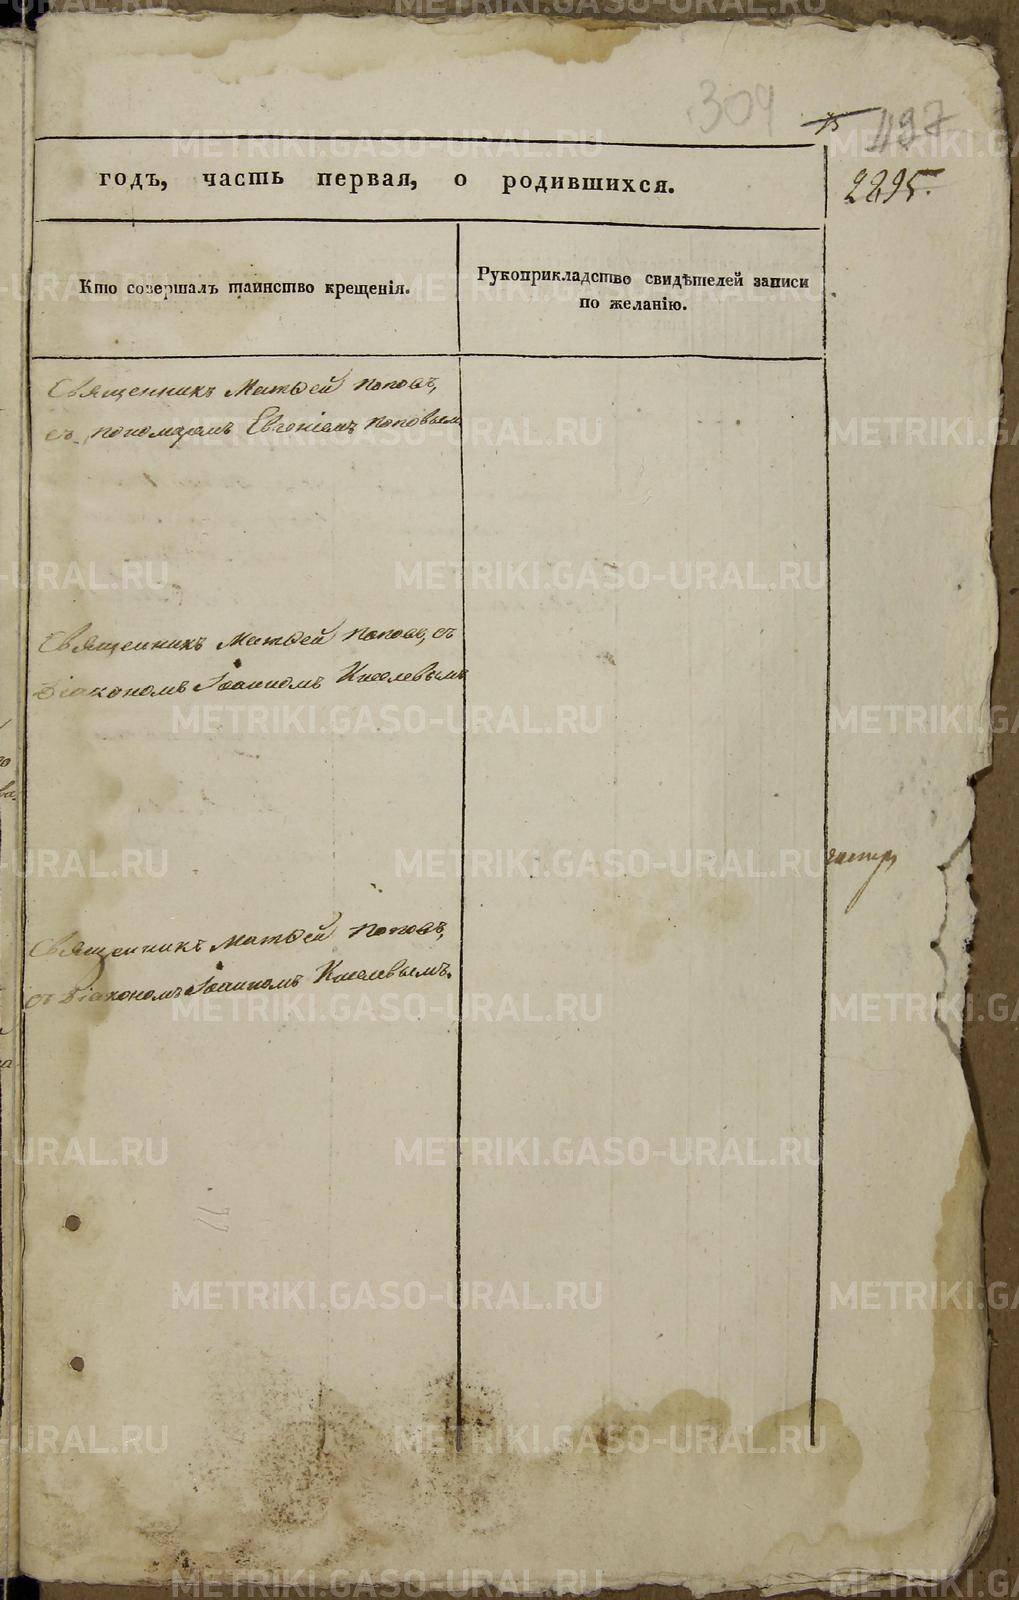 304
75 497
2295.
годъ, часть первая, о родившихся.
Кто совершалъ таинство крещенія.
Рукоприкладство свидѣтелей записи
по желанію.
Священникъ Матѳей Поповъ,
съ пономаремъ Евгеніемъ Поповымъ
Священникъ Матѳей Поповъ, съ
Діакономъ Іоанномъ Киселевымъ
Священникъ Матѳей Поповъ,
съ Діакономъ Іоанномъ Киселевымъ.
METRIKI.GASO-URAL.RU